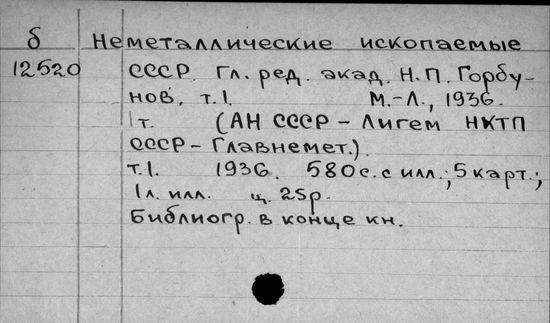 б Неметаллические ископаемые
12520 СССР. Гл. ред. акад. Н.П. Горбу-
нов. т.1. М.-Л., 1936.
1 т. (АН СССР - Лигем НКТП
СССР - Главнемет.).
т.1. 1936. 580 с. с илл.; 5 карт.;
1 л. илл. ц. 25р.
Библиогр. в конце кн.